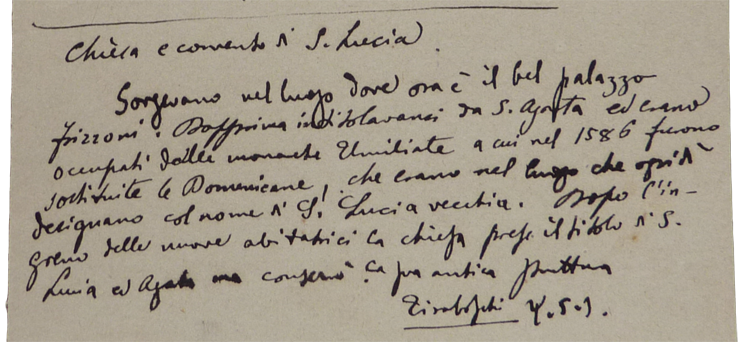 Chiesa e convento di S. Lucia.
Sorgevano nel luogo dove ora è il bel palazzo
Frizzoni. Dapprima intitolavansi da S. Agata ed erano
occupati dalle monache Umiliate a cui nel 1586 furono
sostituite le Domenicane, che erano nel luogo che oggidì
designano col nome di S. Lucia vecchia. Dopo l'in-
gresso delle nuove abitatrici la chiesa prese il titolo di S.
Lucia ed Agata ma conservò la sua antica struttura
Tiraboschi